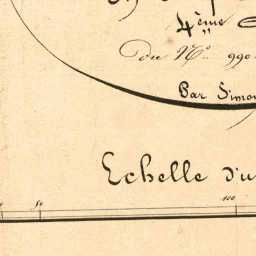 4ème
du N° 990
Par Simo
Echelle d'u
50 100